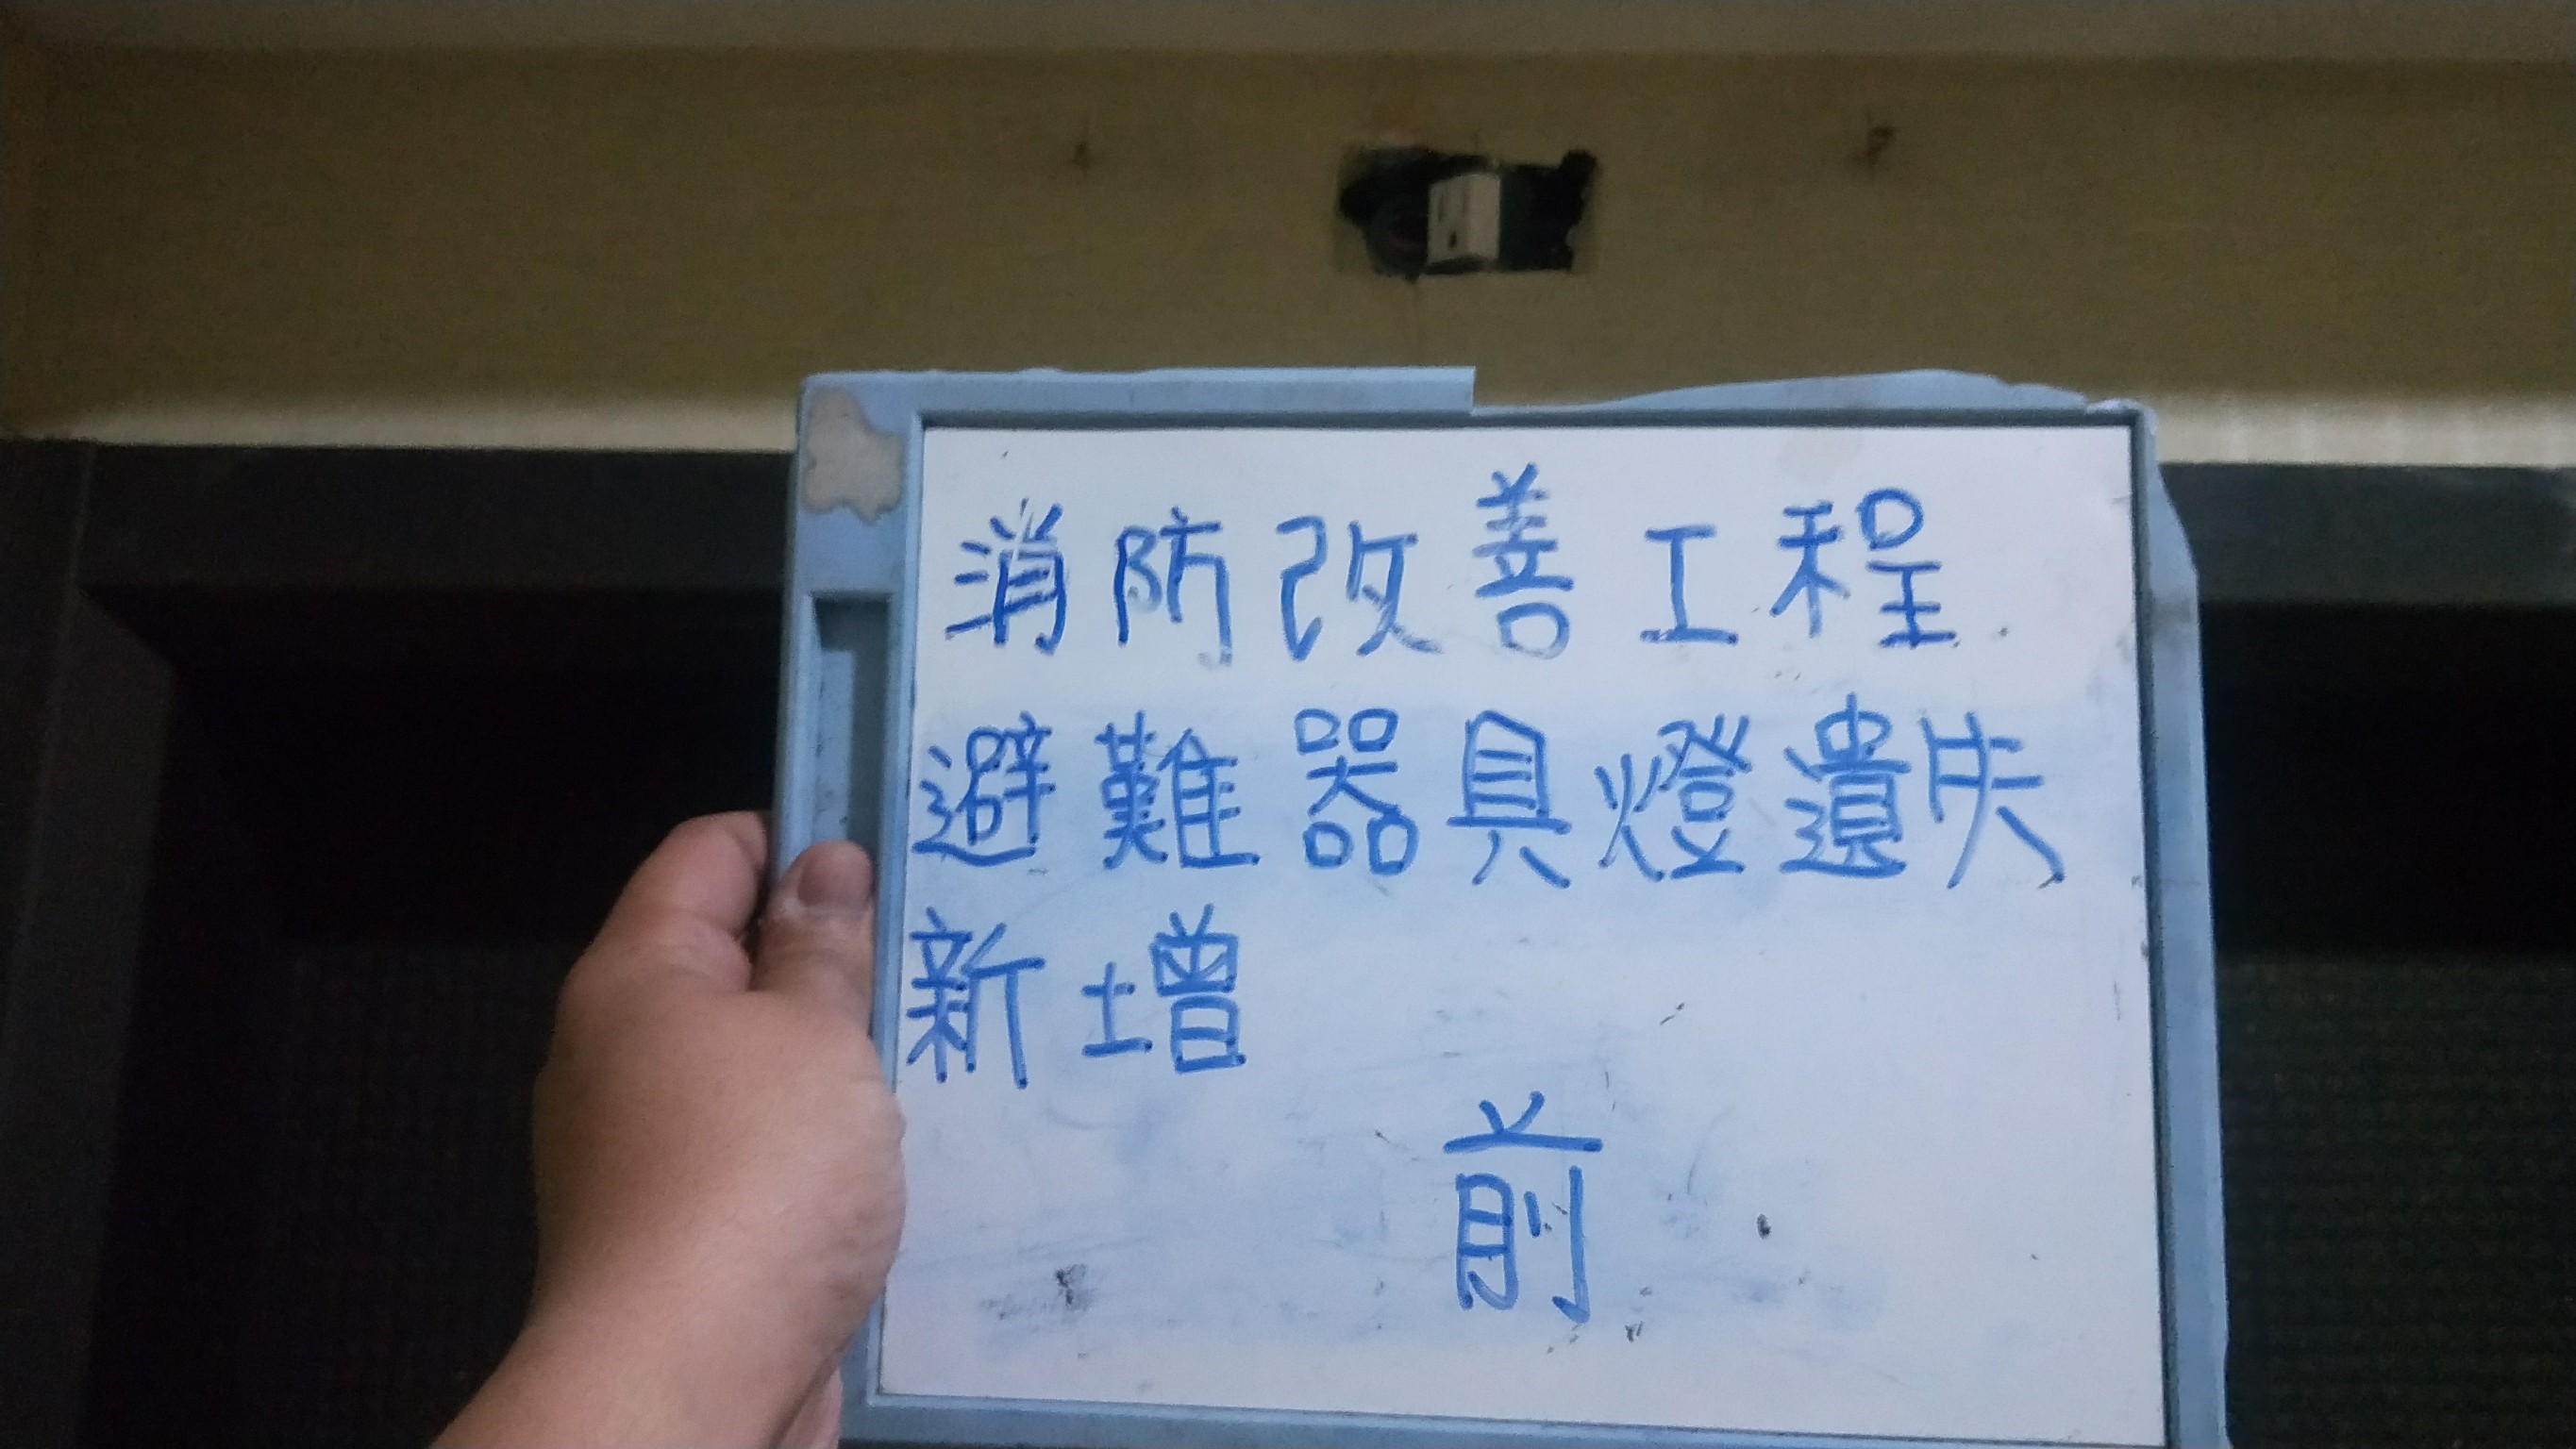 消防改善工程
避難器具燈遺失
新增
前